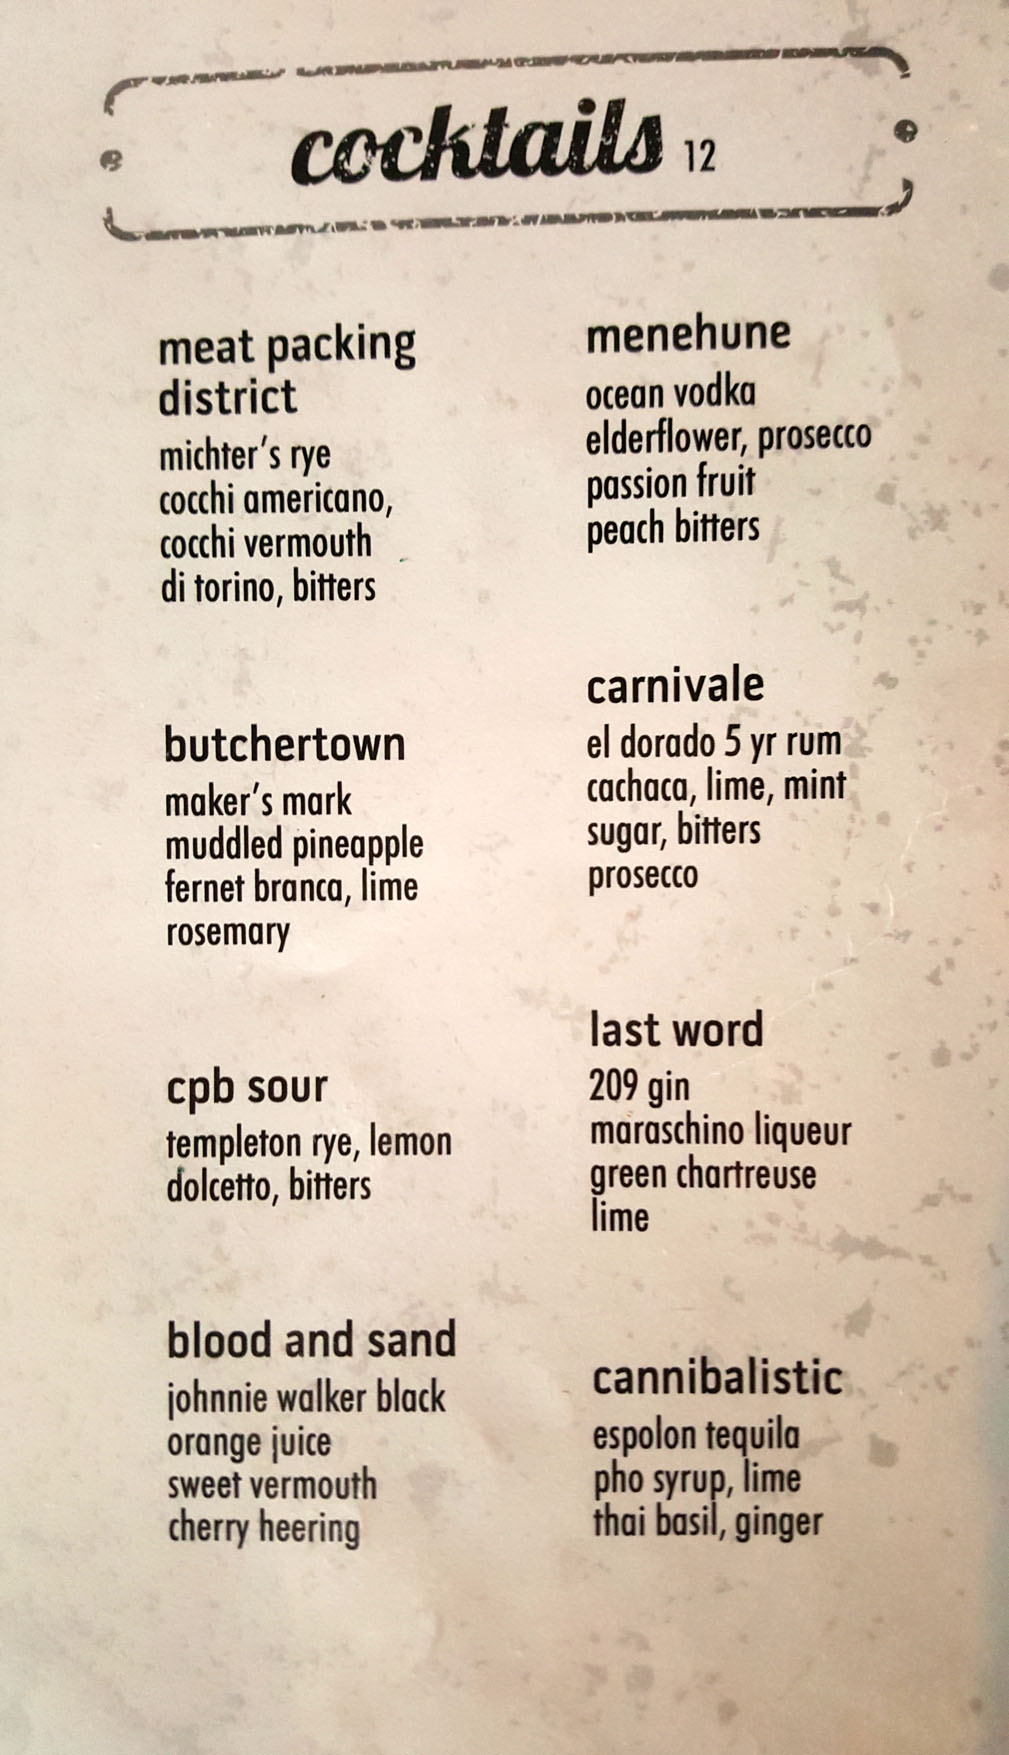 cocktails 12
meat packing
district
michter's rye
cocchi americano,
cocchi vermouth
di torino, bitters
butchertown
maker's mark
muddled pineapple
fernet branca, lime
rosemary
cpb sour
templeton rye, lemon
dolcetto, bitters
blood and sand
johnnie walker black
orange juice
sweet vermouth
cherry heering
menehune
ocean vodka
elderflower, prosecco
passion fruit
peach bitters
carnivale
el dorado 5 yr rum
cachaca, lime, mint
sugar, bitters
prosecco
last word
209 gin
maraschino liqueur
green chartreuse
lime
cannibalistic
espolon tequila
pho syrup, lime
thai basil, ginger